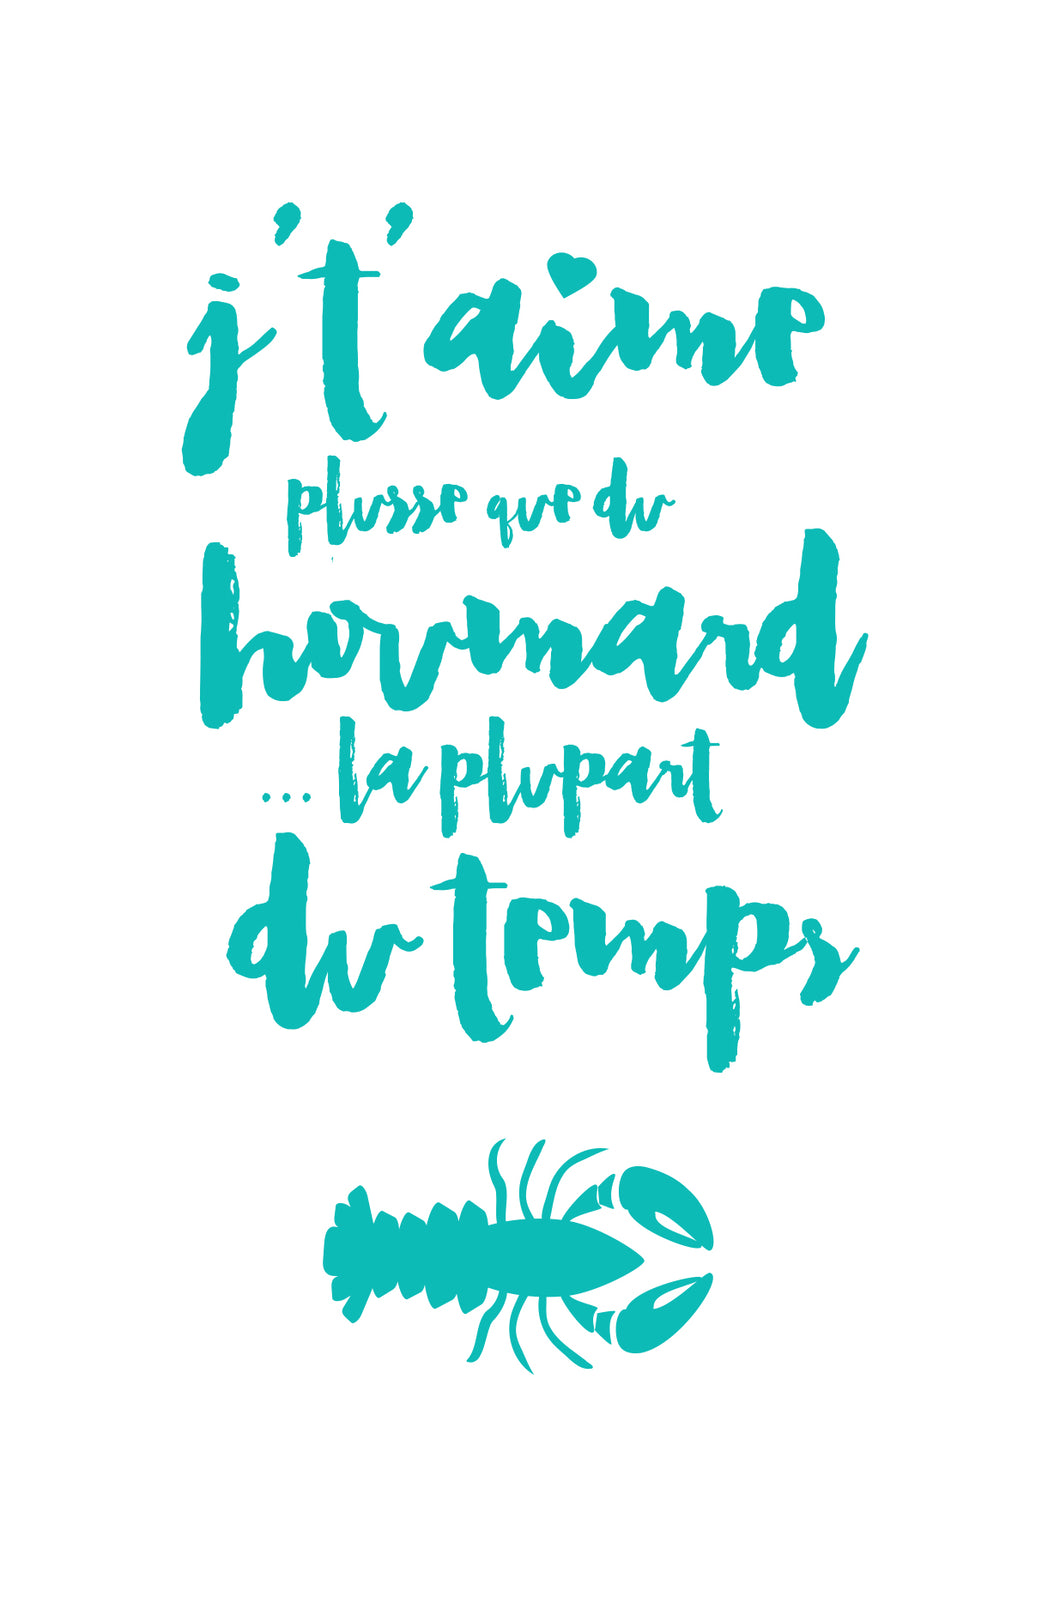 j't'aime
plusse que du
houmard
... la plupart
du temps